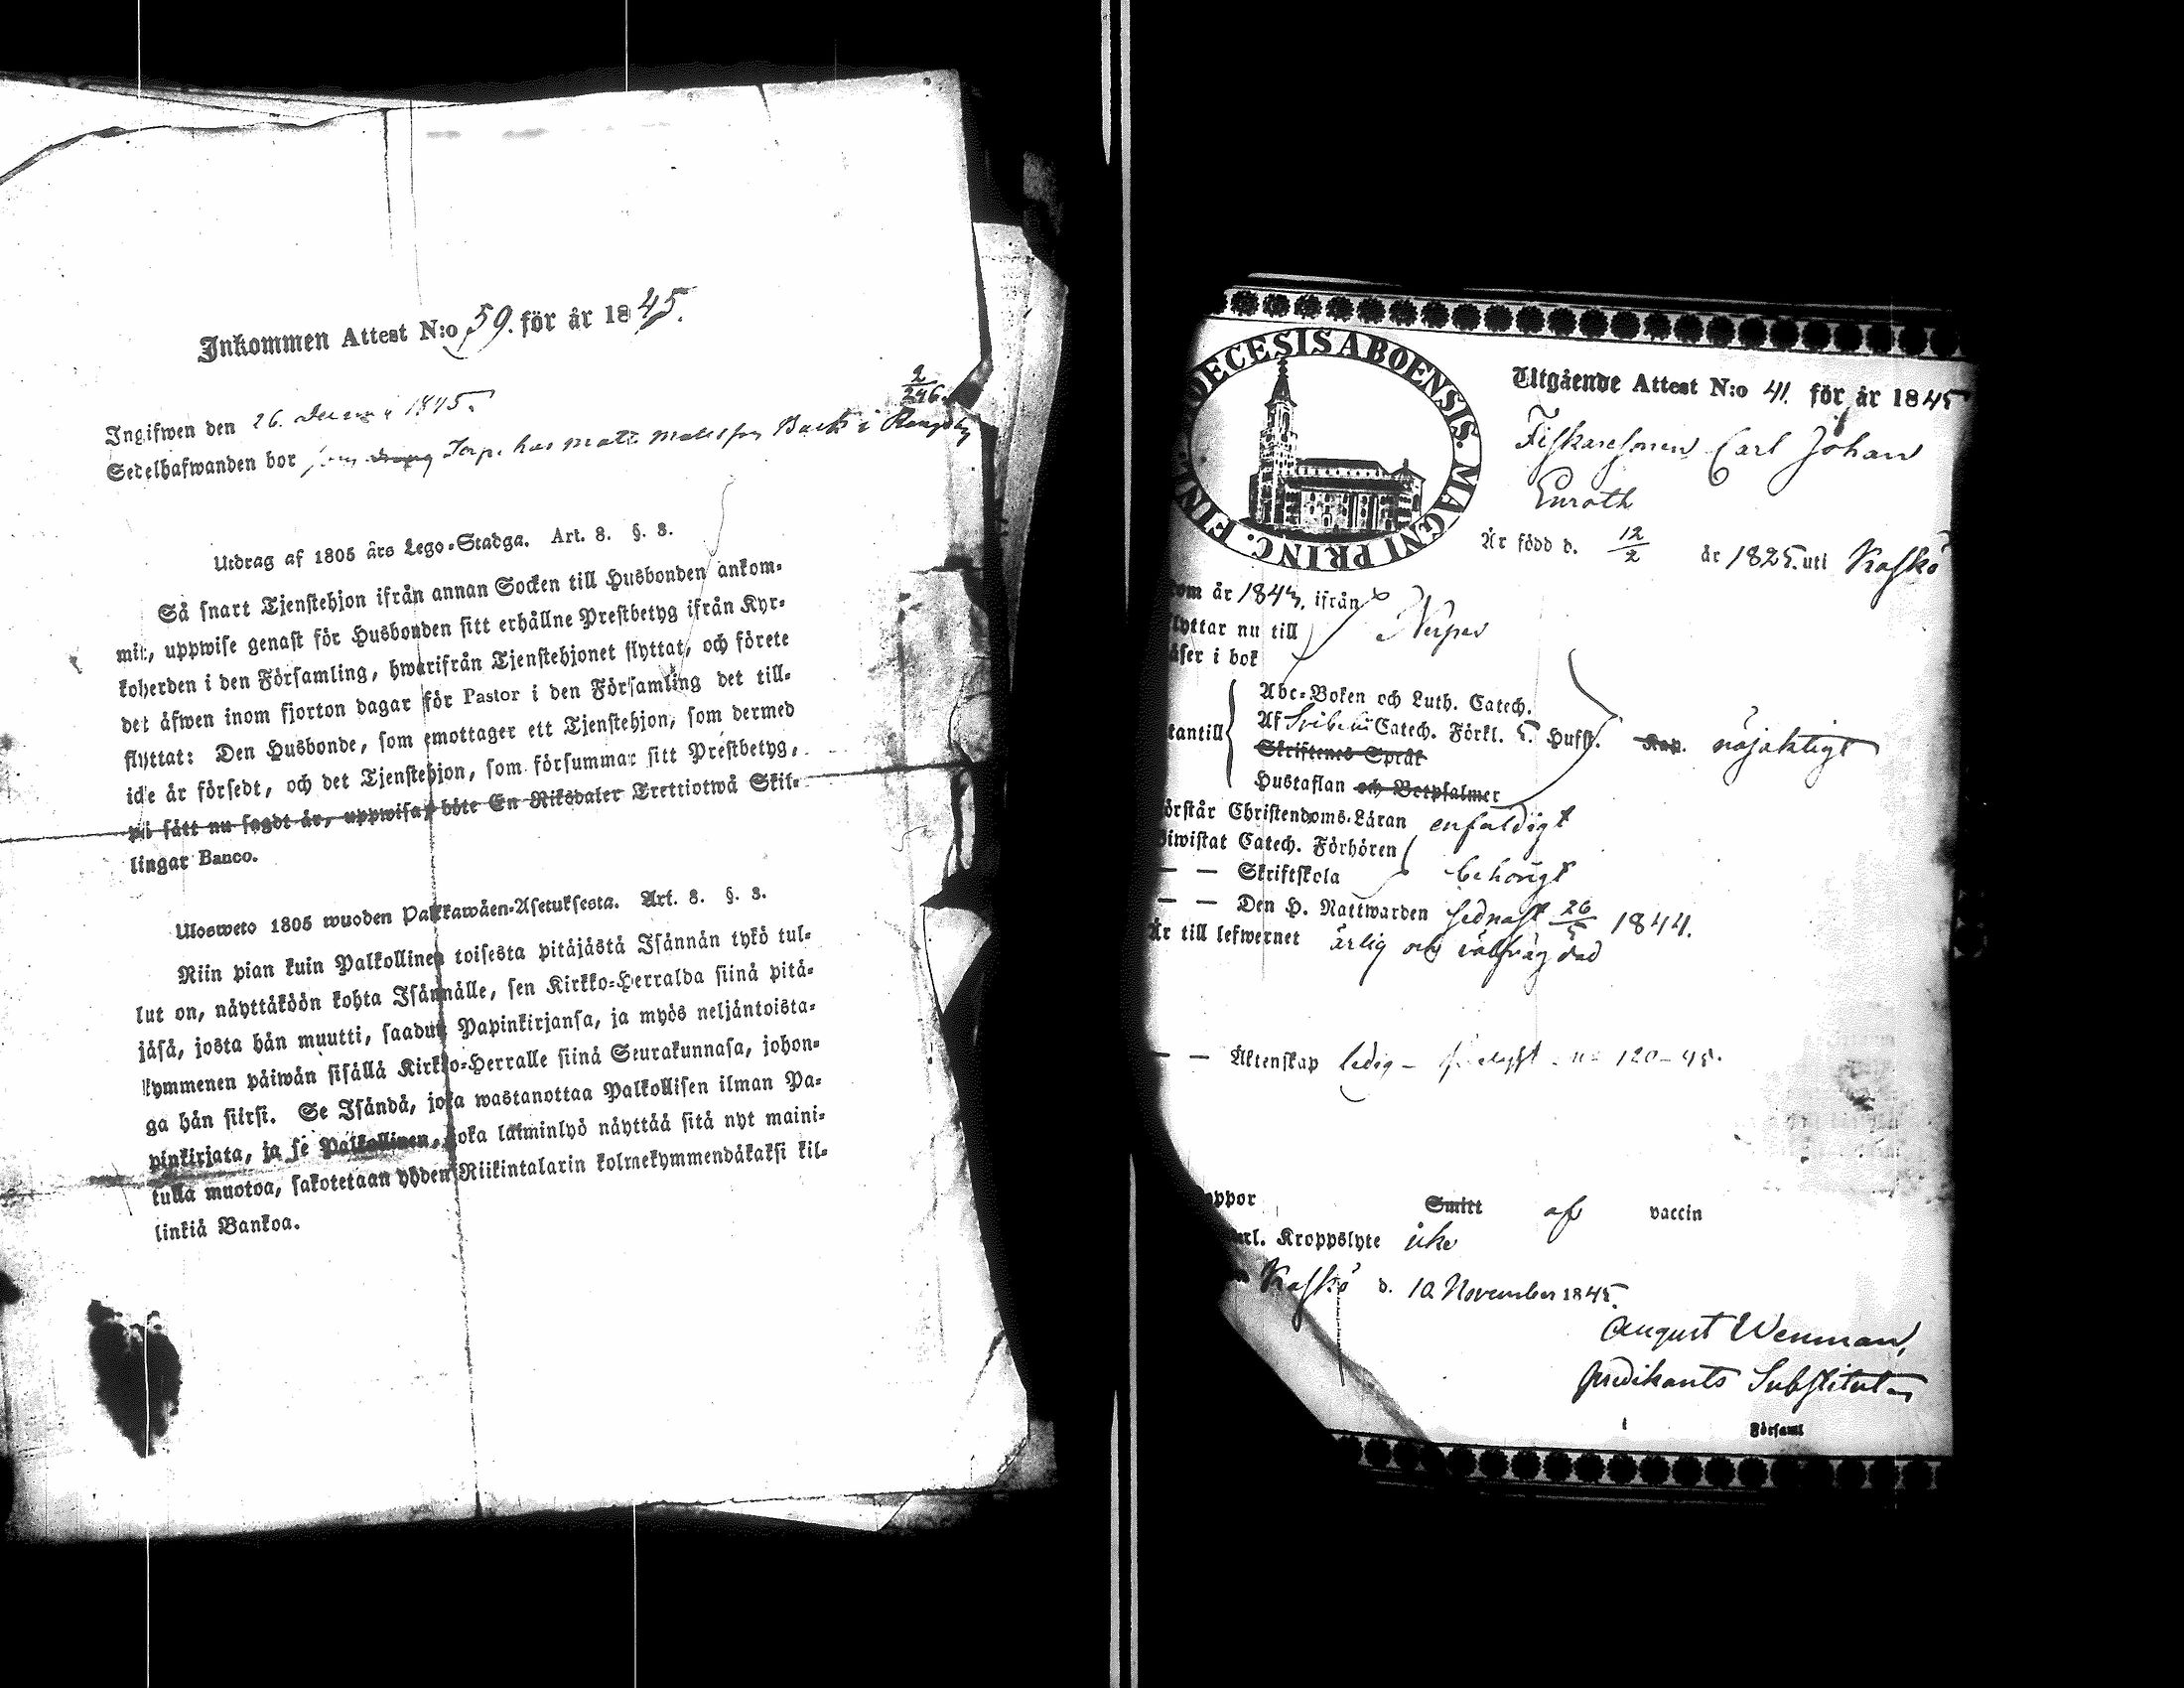 Inkommen Attest N:o 59. för år 1845.
Ingifwen den 26. 1845.
2/246.
Sedelhafwanden bor Torp. hos Matts Mattsson Back i
Utdrag af 1805 års Lego-Stadga. Art. 8. §. 3.
Så snart Tjenstehjon ifrån annan Socken till Husbonden ankom-
mit, uppwise genast för Husbonden sitt erhållne Prestbetyg ifrån Kyr-
koherden i den Församling, hwarifrån Tjenstehjonet flyttat, och förete
det äfwen inom fjorton dagar för Pastor i den Församling det till-
flyttat: Den Husbonde, som emottager ett Tjenstehjon, som dermed
icke är försedt, och det Tjenstehjon, som försummar sitt Prestbetyg,
på sätt nu sagdt är, uppwisa, böte En Riksdaler Trettiotwå Skil-
lingar Banco.
Uloswето 1805 wuoden Palkkawäen-Asetuksesta. Art. 8. §. 3.
Niin pian kuin Palkollinen toisesta pitäjästä Isännän tykö tul-
lut on, näyttäköön kohta Isännälle, sen Kirkko-Herralda siinä pitä-
jäsä, josta hän muutti, saadun Papinkirjansa, ja myös neljäntoista-
kymmenen päiwän sisällä Kirkko-Herralle siinä Seurakunnasa, johon-
ga hän siirsi. Se Isändä, joka wastanottaa Palkollisen ilman Pa-
pinkirjata, ja se Palkollinen, joka laiminlyö näyttää sitä nyt maini-
tulla muotoa, sakotetaan yhden Riikintalarin kolmekymmendäkaksi kil-
linkiä Bankoa.
DECESIS ABOENSIS. MAGNI PRINC. FINL.
Utgående Attest N:o 41. för år 1845
Fiskaresonen Carl Johan
Enroth
Är född d. 12/2 år 1825. uti Kaskö
kom år 1843. ifrån
flyttar nu till Nerpes
läser i bok
Abc-Boken och Luth. Catech.
utantill Af Svebelii Catech. Förkl. Hufst. Kap. nöjaktigt
Skriftenes Språk
Hustaflan och Botpsalmer
förstår Christendoms-Läran enfaldigt
Biwistat Catech. Förhören
— — Skriftskola behörigt
— — Den H. Nattwarden sednast 26/5 1844.
Är till lefwernet ärlig och välfrägdad
— — Äktenskap ledig – – no 120–45.
koppor Smitt af vaccin
Kroppslyte icke
Kaskö d. 10 November 1845.
August Wenman,
Predikants Substitut
i Församl